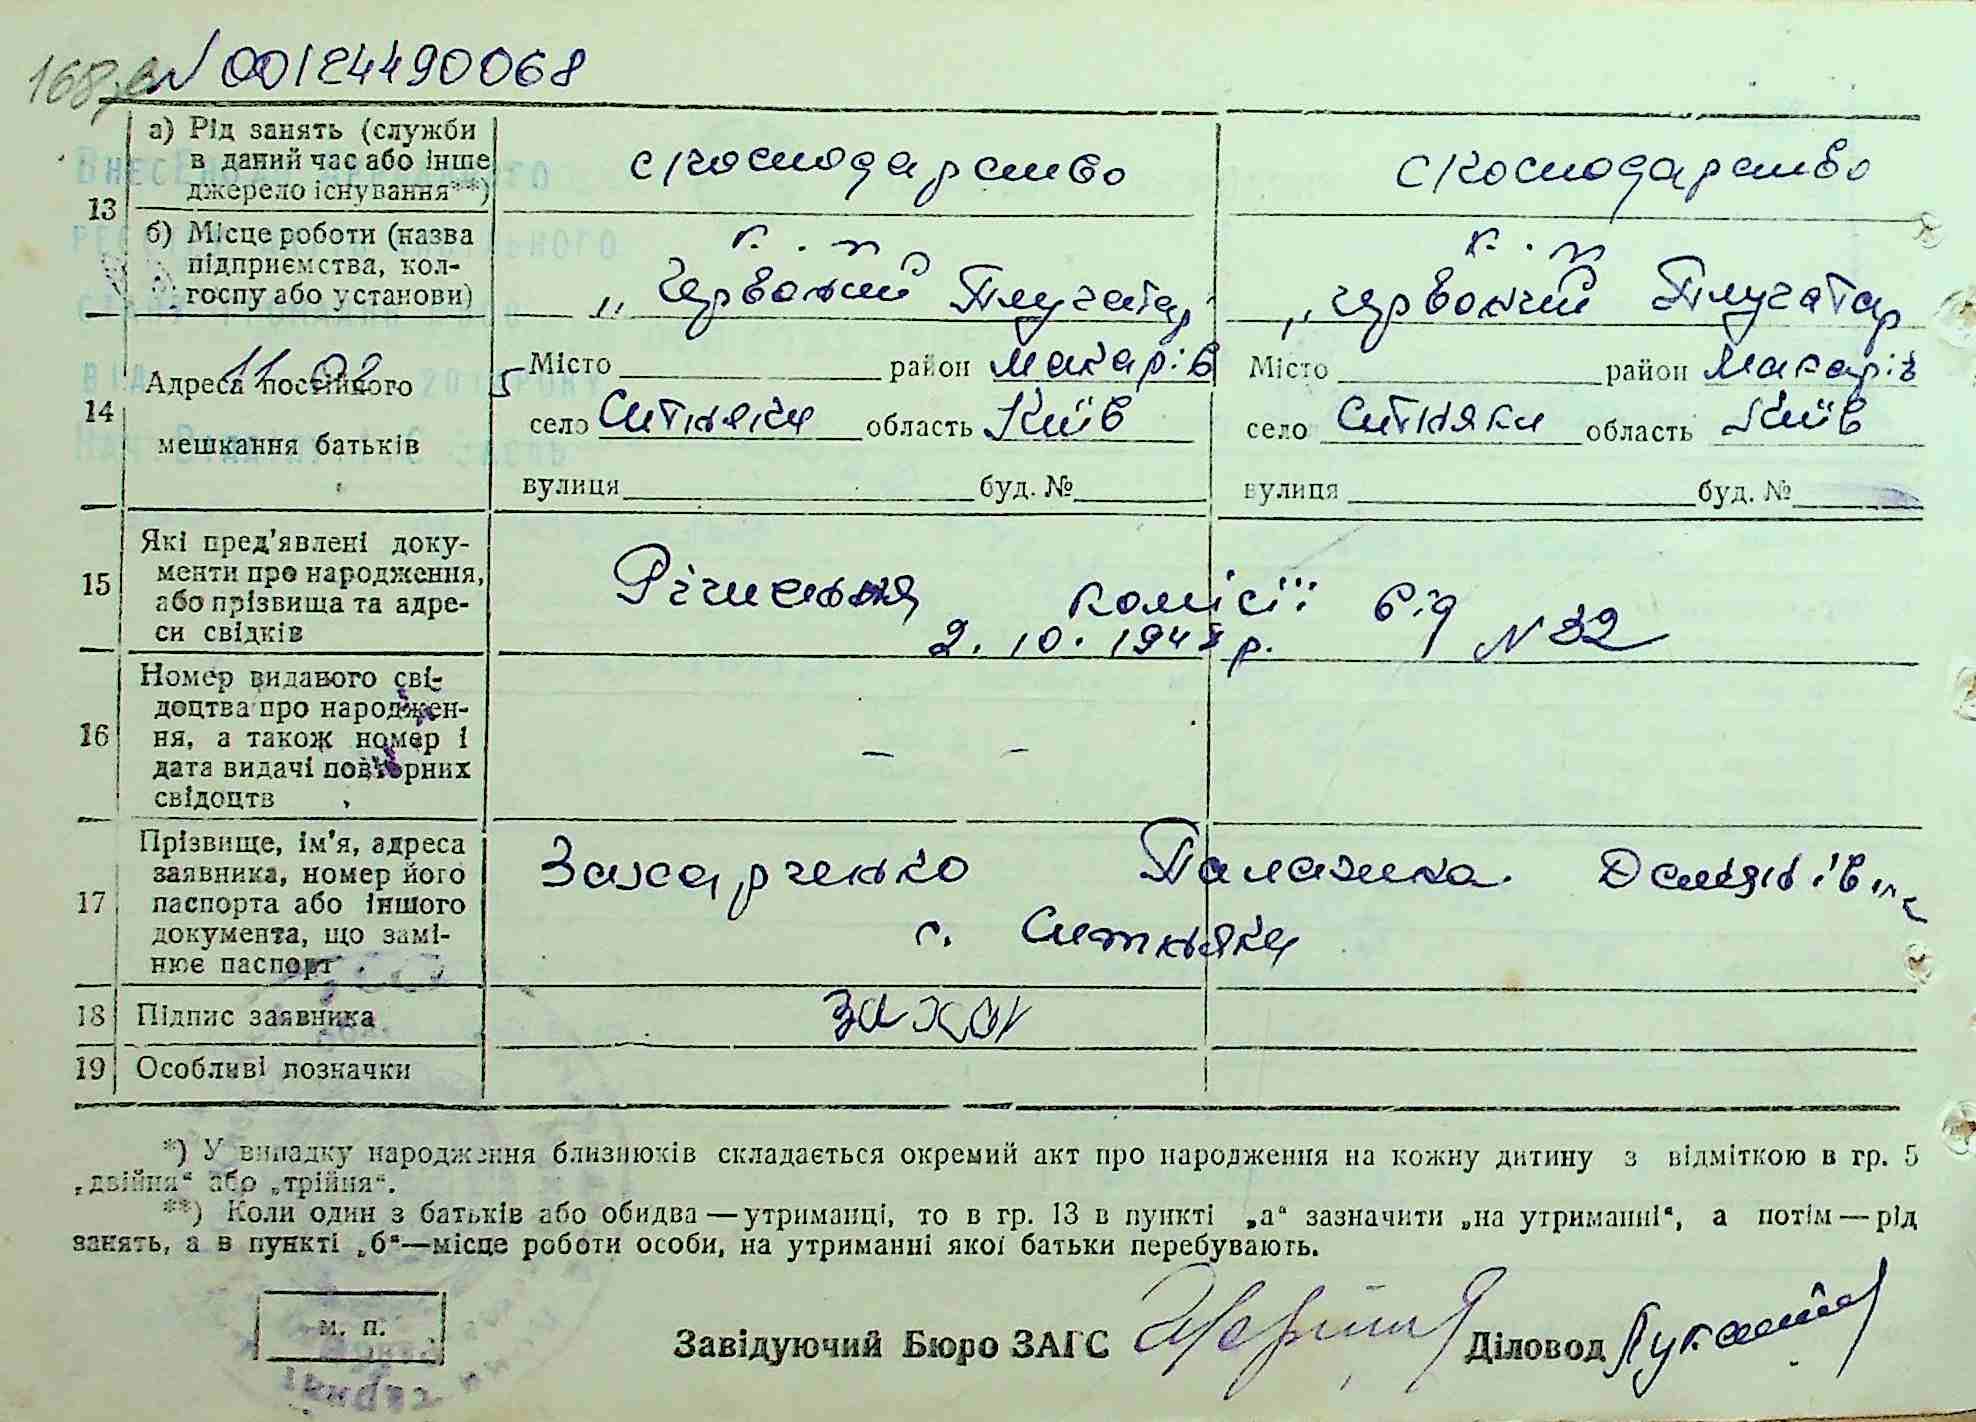 168 зв N 00124490068
13
а) Рід занять (служби в даний час або інше джерело існування**)
с/господарство
с/господарство
б) Місце роботи (назва підприємства, колгоспу або установи)
к. п.
„Червоний Плугатар
к. п.
„Червоний Плугатар
14
Адреса постійного мешкання батьків
11. 02
Місто район Макарів
село Ситняки область Київ
вулиця буд. №
Місто район Макарів
село Ситняки область Київ
вулиця буд. №
15
Які пред'явлені документи про народження, або прізвища та адреси свідків
Рішення комісії від
2. 10. 194 р. N 32
16
Номер виданого свідоцтва про народження, а також номер і дата видачі повторних свідоцтв
— —
17
Прізвище, ім'я, адреса заявника, номер його паспорта або іншого документа, що замінює паспорт
Захарченко Палажка Дем'янівна
с. Ситняки
18
Підпис заявника
Захар
19
Особливі позначки
*) У випадку народження близнюків складається окремий акт про народження на кожну дитину з відміткою в гр. 5
„двійня“ або „трійня“.
**) Коли один з батьків або обидва — утриманці, то в гр. 13 в пункті „а“ зазначити „на утриманні“, а потім — рід
занять, а в пункті „б“—місце роботи особи, на утриманні якої батьки перебувають.
м. п.
Завідуючий Бюро ЗАГС
Діловод